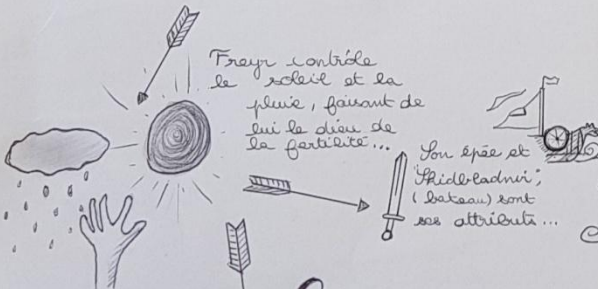 Freyr contrôle
le soleil et la
pluie, faisant de
lui le dieu de
la fertilité...
Son épée et
"Skidbladnir",
(bateau) sont
ses attributs...